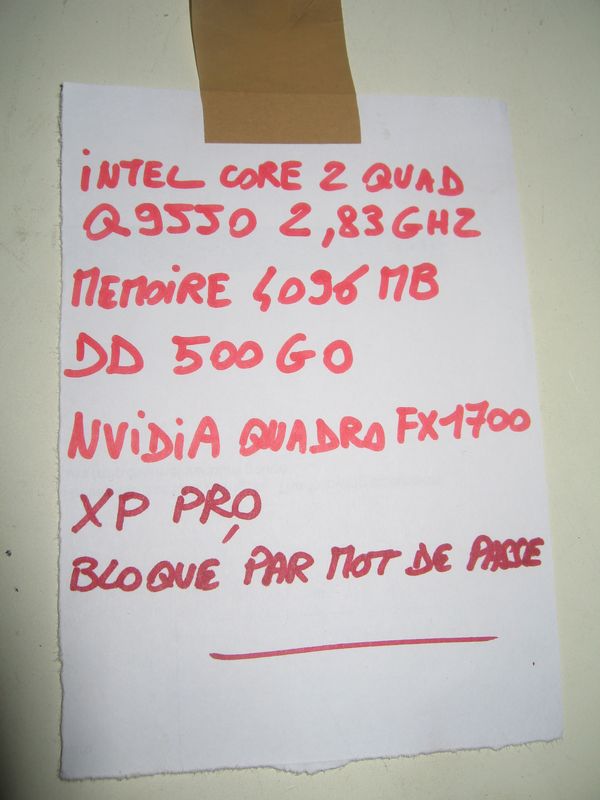 INTEL CORE 2 QUAD
Q9550 2,83 GHZ
MEMOIRE 4096 MB
DD 500 GO
NVIDIA QUADRO FX1700
XP PRO
BLOQUÉ PAR MOT DE PASSE